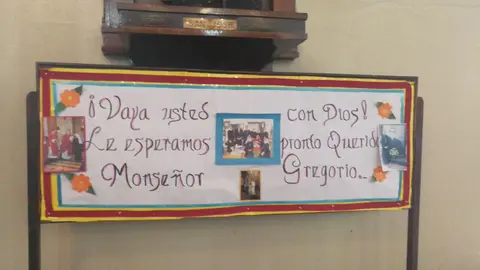 ¡Vaya usted con Dios!
Le esperamos pronto Querido
Monseñor Gregorio..